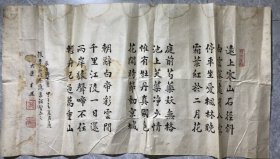 遠上寒山石徑斜
白雲深處有人家
停車坐愛楓林晚
霜葉紅於二月花
庭前芍藥妖無格
池上芙蕖淨少情
惟有牡丹真國色
花開時節動京城
朝辭白帝彩雲間
千里江陵一日還
兩岸猿聲啼不住
輕舟已過萬重山